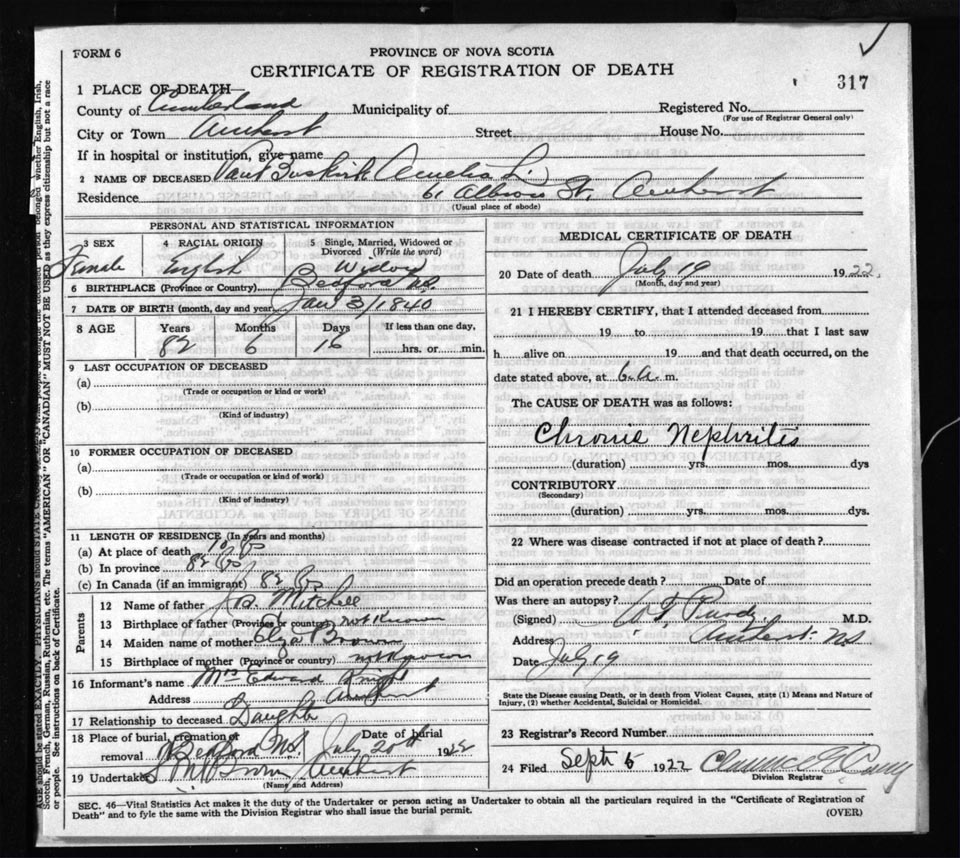 FORM 6
PROVINCE OF NOVA SCOTIA
CERTIFICATE OF REGISTRATION OF DEATH
317
1 PLACE OF DEATH—
County of Cumberland Municipality of Registered No.
(For use of Registrar General only)
City or Town Amherst Street House No.
If in hospital or institution, give name
2 NAME OF DECEASED Van Buskirk Amelia L.
Residence 61 Albion St. Amherst
(Usual place of abode)
PERSONAL AND STATISTICAL INFORMATION
3 SEX 4 RACIAL ORIGIN 5 Single, Married, Widowed or Divorced (Write the word)
Female English Widow
6 BIRTHPLACE (Province or Country) Bedford N.S.
7 DATE OF BIRTH (month, day and year) Jan 3/1840
8 AGE Years Months Days If less than one day,
82 6 16 hrs. or min.
9 LAST OCCUPATION OF DECEASED
(a)
(Trade or occupation or kind of work)
(b)
(Kind of industry)
10 FORMER OCCUPATION OF DECEASED
(a)
(Trade or occupation or kind of work)
(b)
(Kind of industry)
11 LENGTH OF RESIDENCE (In years and months)
(a) At place of death
(b) In province 82 yrs
(c) In Canada (if an immigrant) 82 yrs
Parents
12 Name of father Mitchell
13 Birthplace of father (Province or country) not known
14 Maiden name of mother Eliza Brown
15 Birthplace of mother (Province or country)
16 Informant's name Mrs Edward Knight
Address Amherst
17 Relationship to deceased Daughter
18 Place of burial, cremation or removal Bedford N.S. Date of burial July 20th 1922
19 Undertaker Brown Amherst
(Name and Address)
MEDICAL CERTIFICATE OF DEATH
20 Date of death July 19 1922
(Month, day and year)
21 I HEREBY CERTIFY, that I attended deceased from
19 to 19 that I last saw
h alive on 19 and that death occurred, on the
date stated above, at 6.a. m.
The CAUSE OF DEATH was as follows:
Chronic Nephritis
(duration) yrs. mos. dys
CONTRIBUTORY
(Secondary)
(duration) yrs. mos. dys.
22 Where was disease contracted if not at place of death?
Did an operation precede death? Date of
Was there an autopsy?
(Signed) Purdy M.D.
Address Amherst N.S.
Date July 19
State the Disease causing Death, or in death from Violent Causes, state (1) Means and Nature of
Injury, (2) whether Accidental, Suicidal or Homicidal.
23 Registrar's Record Number
24 Filed Sept 5 1922
Division Registrar
SEC. 46—Vital Statistics Act makes it the duty of the Undertaker or person acting as Undertaker to obtain all the particulars required in the "Certificate of Registration of
Death" and to fyle the same with the Division Registrar who shall issue the burial permit.
(OVER)
AGE should be stated EXACTLY. PHYSICIANS should STATE
Scotch, French, German, Russian, Ruthenian, etc. The terms "AMERICAN" OR "CANADIAN" MUST NOT BE USED as they express citizenship but not a race
or people. See instructions on back of Certificate.